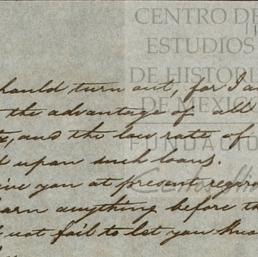 CENTRO DE
ESTUDIOS
DE HISTORI
DE MEXICO
FUNDACIÓ
should turn out, for I a
the advantage of all
, and the low rate of
upon such loans.
give you at present regar
learn anything before th
not fail to let you know